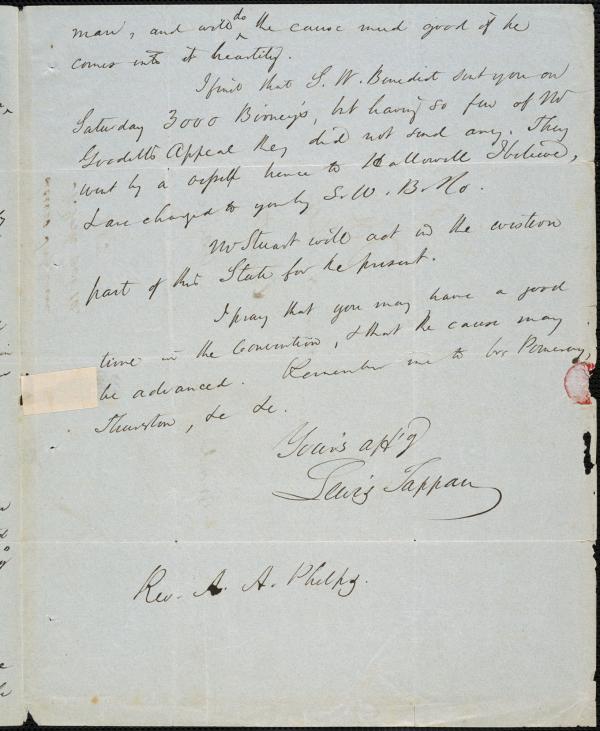 man, and will do the cause much good if he
comes into it heartily.
I find that S. W. Benedict sent you on
Saturday 3000 Birney's, but having so few of Mr
Goodell's Appeal they did not send any. They
went by a vessel hence to Hallowell I believe,
& are charged to you by S. W. B. & Co.
Mr Stuart will act in the western
part of this State for the present.
I pray that you may have a good
time in the Convention, & that the cause may
be advanced. Remember me to brs Pomeroy,
Thurston, &c &c.
Yours aff'y
Lewis Tappan
Rev. A. A. Phelps.